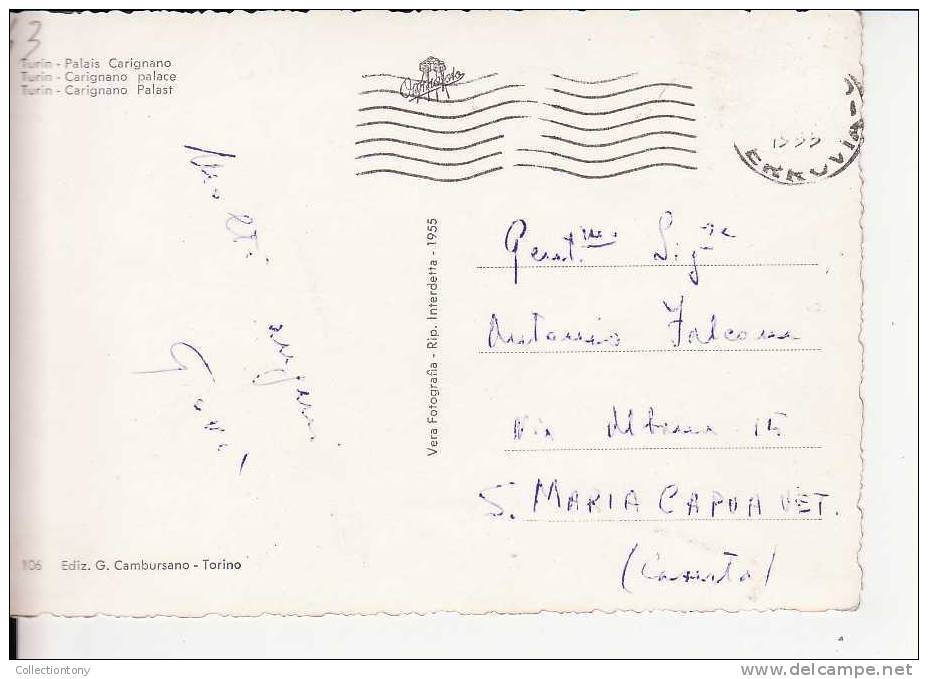 3
Turin - Palais Carignano
Turin - Carignano palace
Turin - Carignano Palast
1955
Vera Fotografia - Rip. Interdetta - 1955
auguri
Gent.mo Sig.re
Antonio Falcone
Via Albana 15
S. MARIA CAPUA VET.
(Caserta)
106 Ediz. G. Cambursano - Torino
Collectiontony
www.delcampe.net